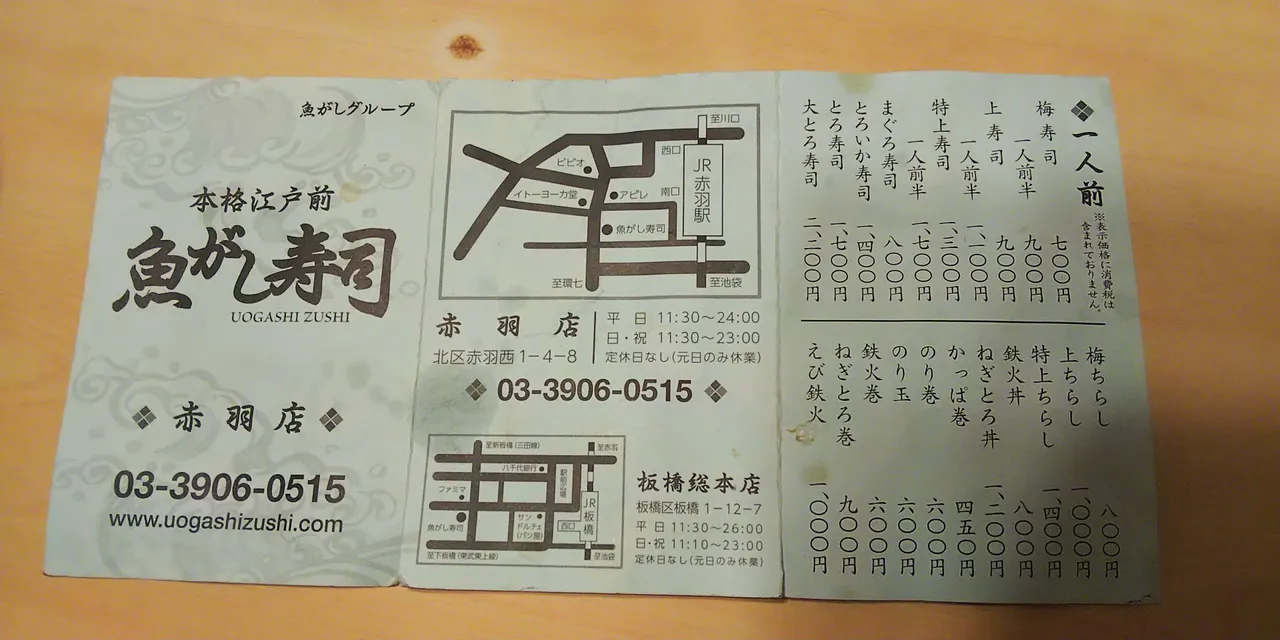 魚がしグループ
本格江戸前
魚がし寿司
UOGASHI ZUSHI
赤羽店
03-3906-0515
www.uogashizushi.com
至川口
西口
ビビオ
JR赤羽駅
イトーヨーカ堂
アピレ
南口
魚がし寿司
至環七
至池袋
赤羽店
北区赤羽西1-4-8
平日 11:30～24:00
日・祝 11:30～23:00
定休日なし(元日のみ休業)
03-3906-0515
至新板橋(三田線)
至赤羽
八千代銀行
駅前広場
ファミマ
JR板橋
魚がし寿司
サン
ドルチェ
(パン屋)
西口
至下板橋(東武東上線)
至池袋
板橋総本店
板橋区板橋1-12-7
平日 11:30～26:00
日・祝 11:10～23:00
定休日なし(元日のみ休業)
一人前
※表示価格に消費税は
含まれておりません。
梅寿司 七〇〇円
一人前半 九〇〇円
上寿司 九〇〇円
一人前半 一、一〇〇円
特上寿司 一、三〇〇円
一人前半 一、七〇〇円
まぐろ寿司 八〇〇円
とろいか寿司 一、四〇〇円
とろ寿司 一、七〇〇円
大とろ寿司 二、二〇〇円
梅ちらし 八〇〇円
上ちらし 一、〇〇〇円
特上ちらし 一、四〇〇円
鉄火丼 八〇〇円
ねぎとろ丼 一、二〇〇円
かっぱ巻 四五〇円
のり巻 六〇〇円
のり玉 六〇〇円
鉄火巻 六〇〇円
ねぎとろ巻 九〇〇円
えび鉄火 一、〇〇〇円